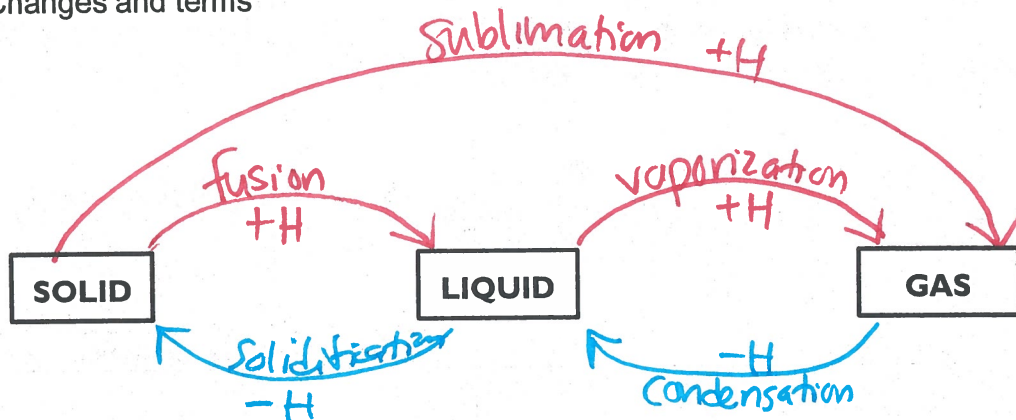 Changes and terms
Sublimation +H
fusion
+H
vaporization
+H
SOLID
LIQUID
GAS
Solidification
-H
-H
Condensation